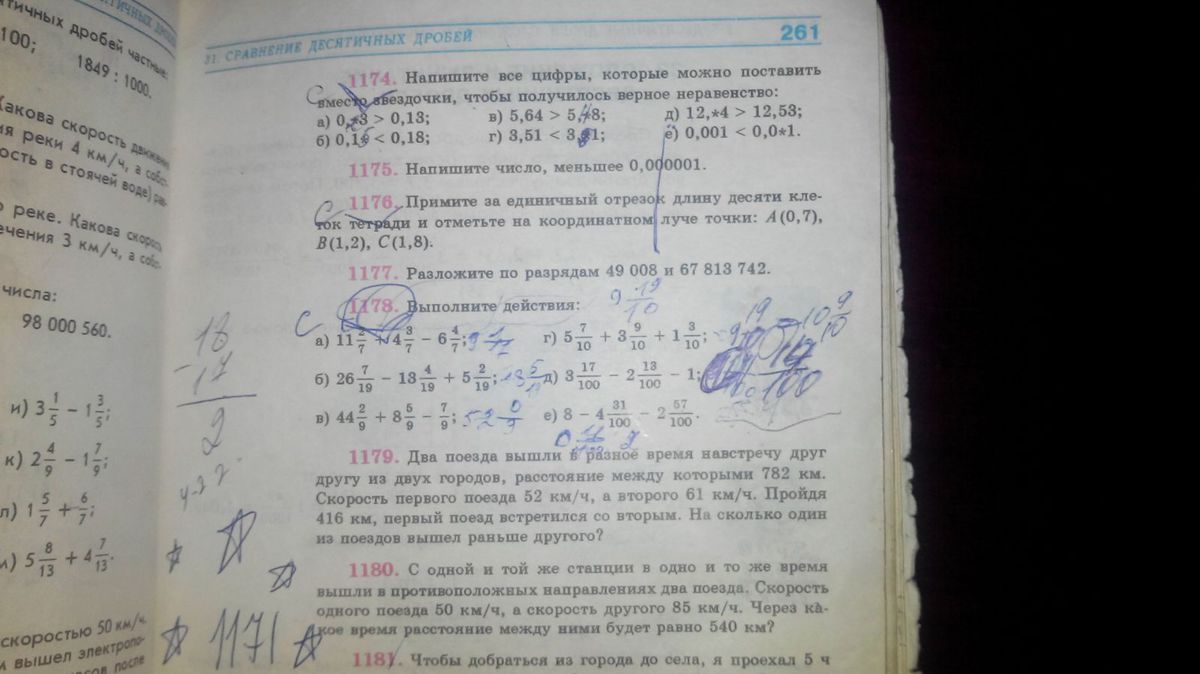 тичных дробей частные:
100; 1849 : 1000.
Какова скорость движения
ия реки 4 км/ч, а собст-
ость в стоячей воде) рав-
о реке. Какова скорость
ечения 3 км/ч, а собст-
числа:
98 000 560.
и) 3 1/5 − 1 3/5;
к) 2 4/9 − 1 7/9;
л) 1 5/7 + 6/7;
м) 5 8/13 + 4 7/13.
скоростью 50 км/ч.
и вышел электропо-
асов после
18
− 17
2
1171
31. СРАВНЕНИЕ ДЕСЯТИЧНЫХ ДРОБЕЙ 261
1174. Напишите все цифры, которые можно поставить
вместо звездочки, чтобы получилось верное неравенство:
а) 0,*3 > 0,13; в) 5,64 > 5,*8; д) 12,*4 > 12,53;
б) 0,1* < 0,18; г) 3,51 < 3,*1; е) 0,001 < 0,0*1.
1175. Напишите число, меньшее 0,000001.
С 1176. Примите за единичный отрезок длину десяти кле-
ток тетради и отметьте на координатном луче точки: A(0,7),
B(1,2), C(1,8).
1177. Разложите по разрядам 49 008 и 67 813 742.
1178. Выполните действия: 9 19/10
С а) 11 2/7 + 4 3/7 − 6 4/7; г) 5 7/10 + 3 9/10 + 1 3/10; 10 9/10
б) 26 7/19 − 13 4/19 + 5 2/19; д) 3 17/100 − 2 13/100 − 1;
в) 44 2/9 + 8 5/9 − 7/9; 52 0/9 е) 8 − 4 31/100 − 2 57/100.
1179. Два поезда вышли в разное время навстречу друг
другу из двух городов, расстояние между которыми 782 км.
Скорость первого поезда 52 км/ч, а второго 61 км/ч. Пройдя
416 км, первый поезд встретился со вторым. На сколько один
из поездов вышел раньше другого?
1180. С одной и той же станции в одно и то же время
вышли в противоположных направлениях два поезда. Скорость
одного поезда 50 км/ч, а скорость другого 85 км/ч. Через ка-
кое время расстояние между ними будет равно 540 км?
1181. Чтобы добраться из города до села, я проехал 5 ч